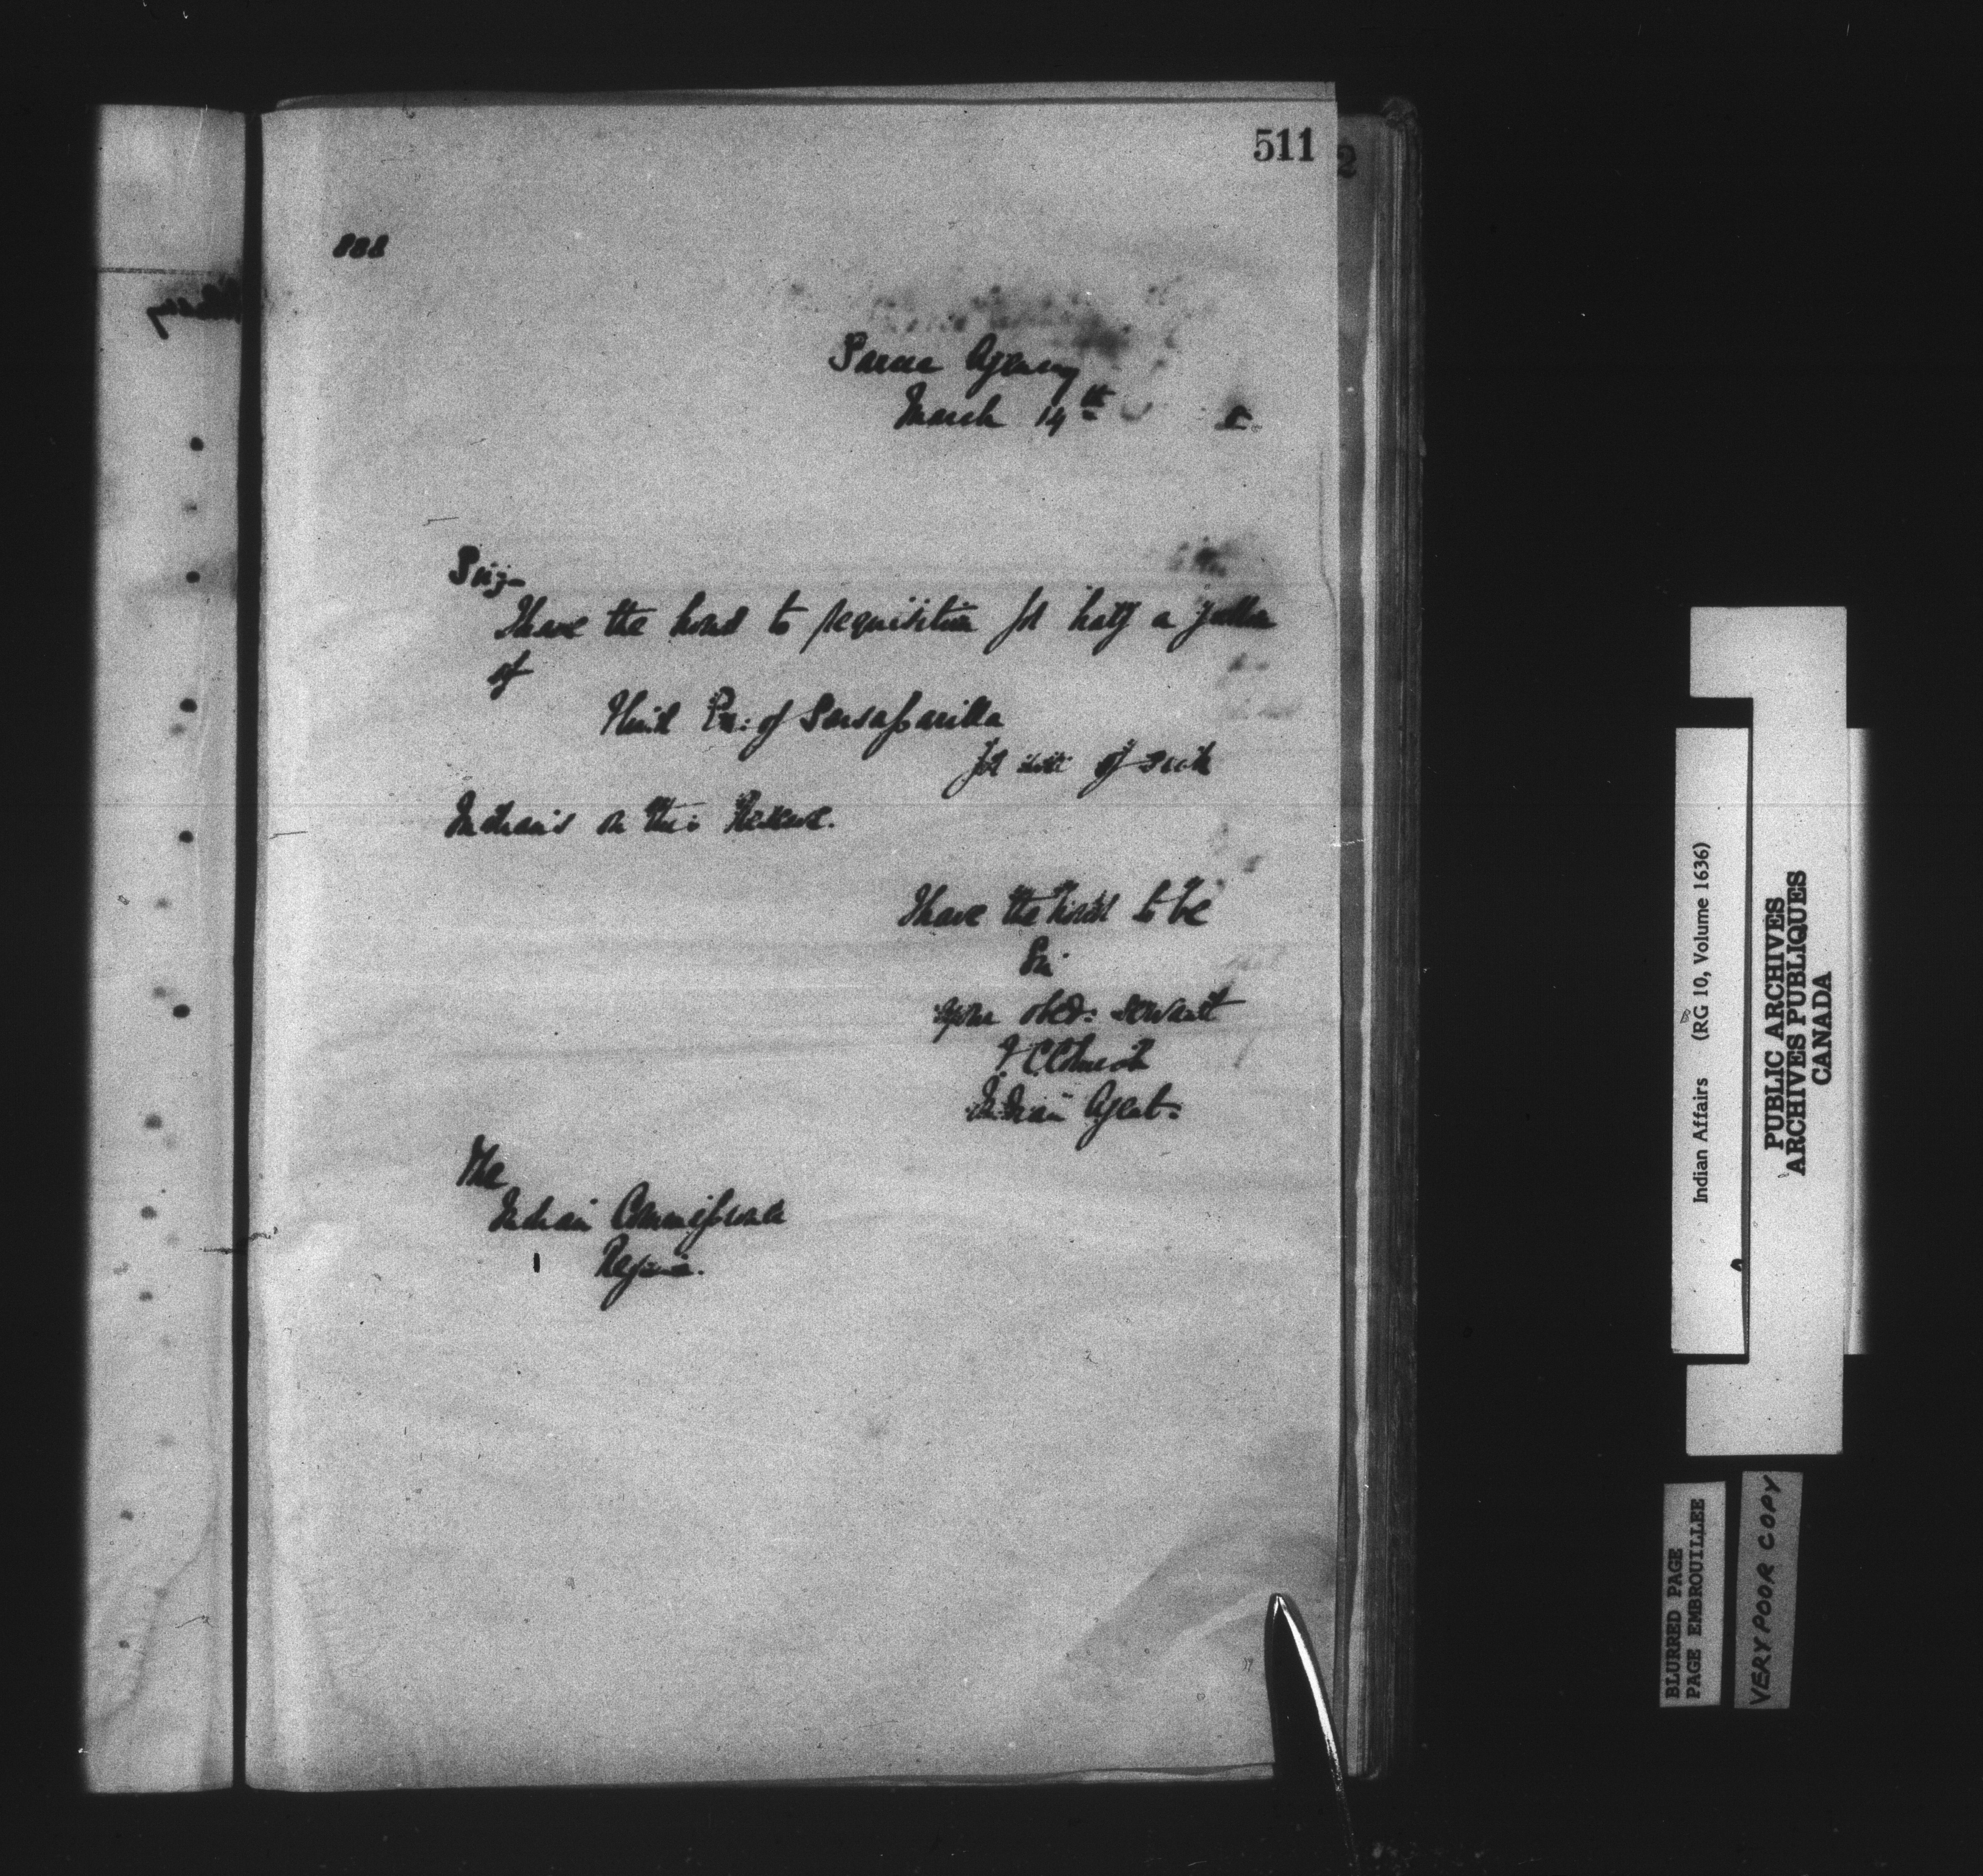 511
888
Sarcee Agency
March 14th
Sir,
I have the honor to requisition for half a gallon
of
Fluid Ex: of Sarsaparilla
for use of sick
Indians on this Reserve.
I have the honor to be
Sir
your obed: servant
Indian Agent.
The
Indian Commissioner
Regina.
Indian Affairs (RG 10, Volume 1636)
PUBLIC ARCHIVES
ARCHIVES PUBLIQUES
CANADA
BLURRED PAGE
PAGE EMBROUILLEE
VERY POOR COPY